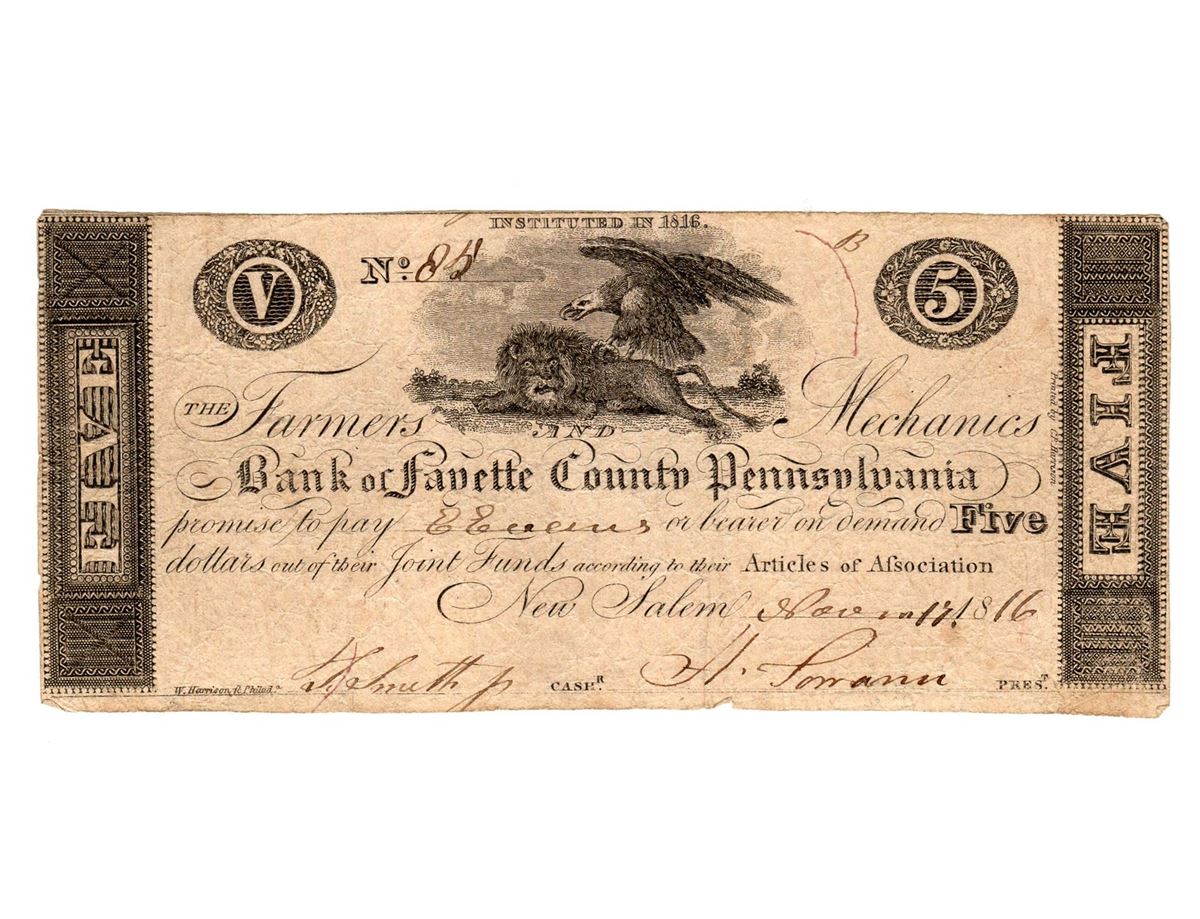 INSTITUTED IN 1816.
B
V
Nº. 85
5
FIVE
FIVE
THE Farmers AND Mechanics
Bank of Fayette County Pennsylvania
promise to pay E Evens or bearer on demand Five
dollars out of their Joint Funds according to their Articles of Aſsociation
New Salem Nov 17. 1816
Smith jr CASHR. PREST.
W. Harrison, sc. Philada.